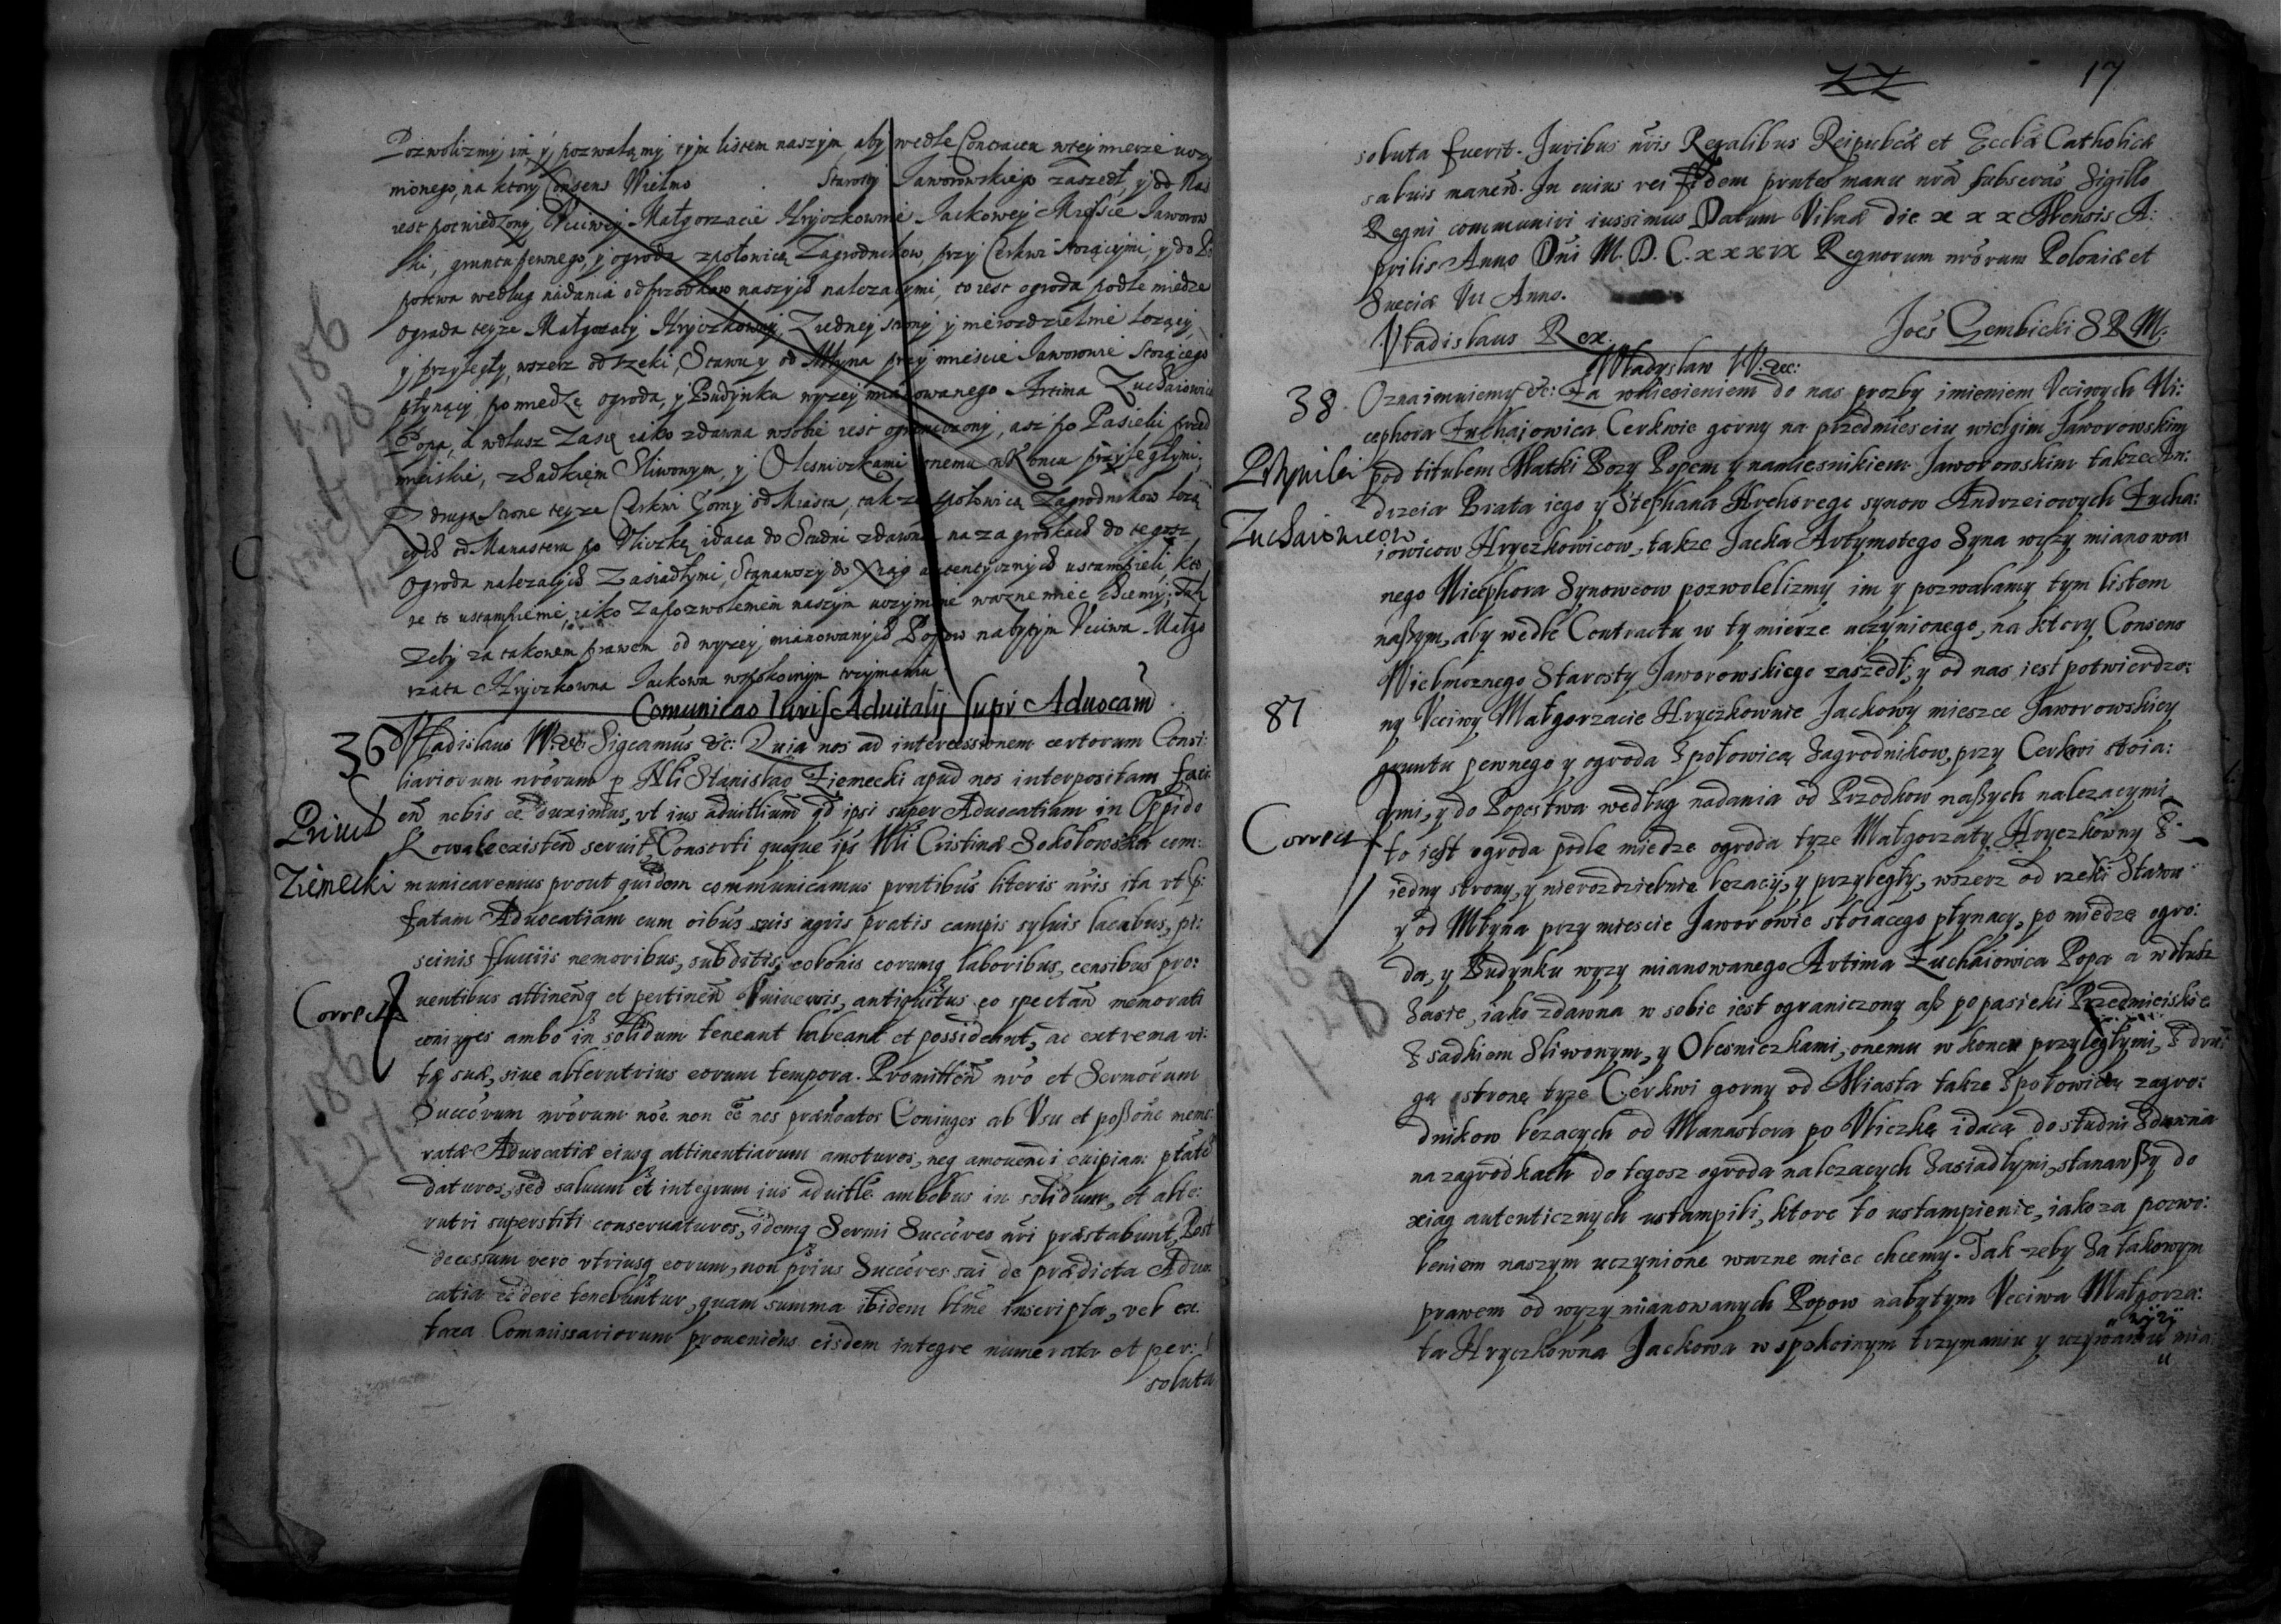 Pozwolizmy im y pozwalamy tym listem naszym aby wedle Contractu wtey mierze uczy
nionego, na ktory Consens Wielmo Starosty Jaworowskiego zaszedł, y od Nas
iest potwiedzony Vcciwey Małgorzacie Hryczkownie Jackowey Mieście Jaworow
ski, gruntu pewnego, y ogroda zpołowicą Zagrodnikow, przy Cerkwi stoiącymi, y do Po
postwa według nadania od przodkow naszych nalezacymi, to iest ogroda podle miedze
ogroda teyze Małgorzaty Hryczkowny Ziedney strony y nierozdzielnie lezącey
y przyległy, wszerz od rzeki, Stawu y od Młyna przy mieście Jaworowie Stoiącego
płynący po miedzę ogroda, y Budynku wyzey mianowanego Artima Zuchaiowica
Popa, a wdłusz Zasię iako zdawna wsobie iest ograniczony, asz po Pasieki przed
mieiskie, zSadkiem Sliwonym, y Olesniczkami onemu wKoncu przyległymi,
Z drugą strone teyze Cerkwi Gorny od Miasta, takze zpołowicą Zagrodnikow lezą
cych od Manasteru po Vliczkę idaca do Studni zdawna na zagrodkach do tegosz
ogroda nalezacych Zasiadłymi, Stanawszy do Xiąg autentycznych ustampieli, kto
re to ustampienie, iako Zapozwoleniem naszym uczynione wazne miec chcemy, Tak
zeby za takowem prawem od wyzey mianowanych Popow nabytym Vcciwa Małgo
rzata Hryczkowna Jackowa wspokoinym trzymaniu
Comunicao Iuris Aduitalij supr Aduocam
36 Vladislaus IV. etc: Sigcamus etc: Quia nos ad intercessionem certorum Consi:
liariorum nrorum p Nli Stanislao Ziemecki apud nos interpositam faci
en nobis ee duximus, vt ius aduitlium qd ipsi super Aduocatiam in Oppido
Kowale existen seruit Consorti quoque ips Nli Cristinae Sokołowska com:
Priuil
Ziemecki
municaremus prout quidem communicamus prntibus literis nris ita vt p:
fatam Aduocatiam cum oibus suis agris pratis campis syluis lacabus, pi:
scinis fluuiis nemoribus, subditis, colonis eorumq laboribus, censibus pro:
uentibus attinenq et pertinen Vniuersis, antiquitus eo spectan memorati
Correcta
coniuges ambo in solidum teneant habeant et possideant, ac extrema vi:
tae suae, siue alterutrius eorum tempora. Promitten nro et Sermorum
Succorum nrorum noe non ee nos praenoatos Coniuges ab Vsu et possone memo
ratae Aduocatiae eiusq attinentiarum amoturos, neq amouendi cuipiam ptate
daturos, sed saluum et integrum ius aduitle ambobus in solidum, et alte:
rutri superstiti conseruaturos, idemq Sermi Succores nri praestabunt, Post
decessum vero vtriusq eorum, non prius Succores sui de praedicta Aduo
catia cedere tenebuntur, quam summa ibidem ltme inscripta, vel ex
taxa Commissariorum proueniens eisdem integre numerata et per:
soluta
186
28
186
27
17
soluta fuerit. Iuribus nris Regalibus Reipubcae et Ecclae Catholicae
saluis manen. In cuius rei fidem prntes manu nra subscras Sigillo
Regni communiri iussimus Datum Vilnae die x x x Mensis A:
prilis Anno Dni M. D. C. xxxix Regnorum nrorum Poloniae et
Sueciae VII Anno.
Vladislaus Rex. Joes Gembicki S R M.
Władysław IV. etc:
38. Oznaimuiemy etc: Za wniesieniem do nas prozby imieniem Vcciwych Ni:
cephora Zuchaiowica Cerkwie gorny na przedmiesciu wielgim Jaworowskim
pod titulem Matki Bozy Popem y namiesnikiem Jaworowskim takze An:
drzeia Brata iego y Stephana Hrehorego synow Andrzeiowych Zucha:
Zuchaiowicow
iowicow Hryczkowicow, takze Jacka Artymołego Syna wyzy mianowa
nego Nicephora Synowcow pozwolelizmy im y pozwalamy tym listem
naßym, aby wedle Contractu w ty mierze uczynionego, na ktory Consens
Wielmoznego Starosty Jaworowskiego zaszedł, y od nas iest potwierdzo:
87
ny Vcciwy Małgorzacie Hryczkownie Jackowy mieszce Jaworowskiey
gruntu pewnego y ogroda zpołowicą zagrodnikow, przy Cerkwi stoia:
cymi, y do Popostwa według nadania od Przodkow naßych nalezacymi
Correcta
to iest ogroda podle miedze ogroda tyze Małgorzaty Hryczkowny z
iedny strony, y nierozdzielnie lezacy, y przyległy, wszerz od rzeki Stawu
y od Młyna przy miescie Jaworowie stoiącego płynacy, po miedzę ogro:
da, y Budynku wyzy mianowanego Artima Zuchaiowica Popa a wdłusz
zasie, iako zdawna w sobie iest ograniczony aß po pasieki Przedmieiskie
z sadkiem Sliwonym, y Olesniczkami, onemu w koncu przyległymi, z dru:
gą stronę tyze Cerkwi gorny od Miasta takze zpołowicą zagro:
dnikow lezacych od Manastera po Vliczkę idacą do studni zdawna
na zagrodkach do tegosz ogroda nalezacych zasiadłymi, stanawßy do
xiąg autenticznych ustampili, ktore to ustampienie, iako za pozwo:
leniem naszym uczynione wazne miec chcemy. Tak zeby za takowym
prawem od wyzy mianowanych Popow nabytym Vcciwa Małgorza:
ta Hryczkowna Jackowa w spokoinym trzymaniu y uzywaniu wyzy mia
186
28